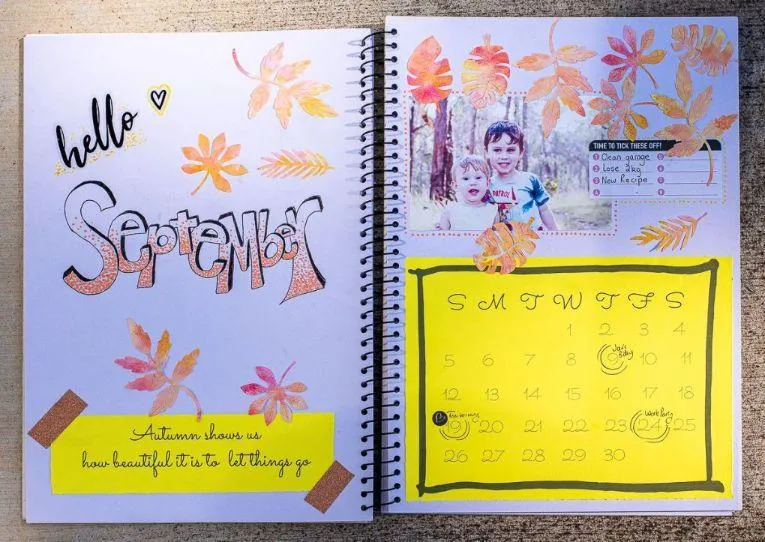 hello
September
Autumn shows us
how beautiful it is to let things go
TIME TO TICK THESE OFF!
1 Clean garage 5
2 Lose 2kg 6
3 New Recipe 7
4 8
S M T W T F S
1 2 3 4
5 6 7 8 9 10 11
12 13 14 15 16 17 18
19 20 21 22 23 24 25
26 27 28 29 30
Bday
Anniversary
Work Party